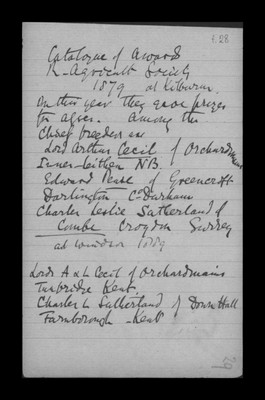 f. 28
Catalogue of Awards
R. Agricult Society
1879 at Kilburn.
On this year they gave prizes
for asses. Among the
Chief breeders are
Lord Arthur Cecil of Orchardmains
Innerleithen NB
Edward Pease of Greencroft
Darlington C-Durham
Charles Leslie Sutherland of
Combe Croydon Surrey
at Windsor 1889
Lords A & L Cecil of Orchardmains
Tunbridge Kent.
Charles L Sutherland of Down Hall
Farnborough - Kent